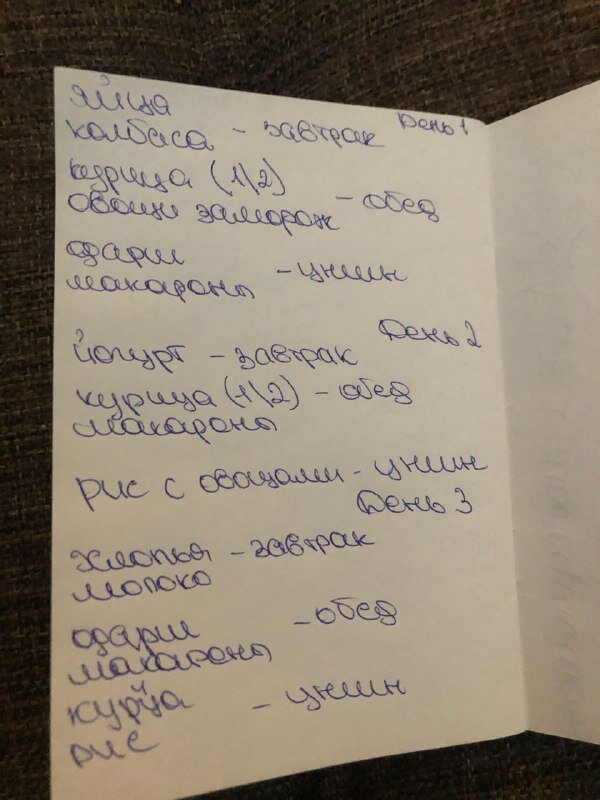 яйца
День 1
колбаса - завтрак
курица (1\2)
овощи заморож - обед
фарш
макароны - ужин
День 2
йогурт - завтрак
курица (1\2) - обед
макароны
рис с овощами - ужин
День 3
хлопья - завтрак
молоко
фарш - обед
макароны
курица - ужин
рис